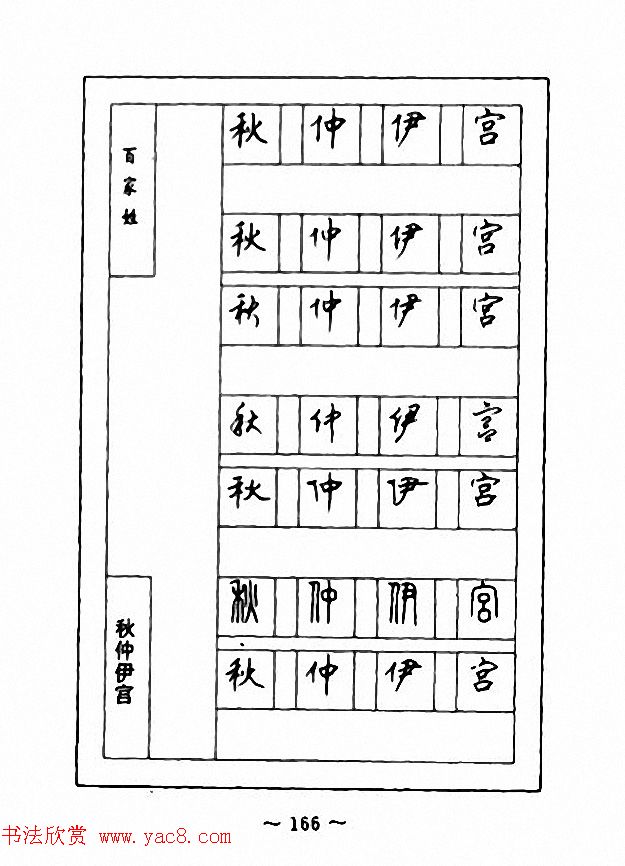 百家姓
秋仲伊宫
秋 仲 伊 宫
秋 仲 伊 宫
秋 仲 伊 宫
秋 仲 伊 宫
秋 仲 伊 宫
秋 仲 伊 宫
秋 仲 伊 宫
～ 166 ～
书法欣赏 www.yac8.com